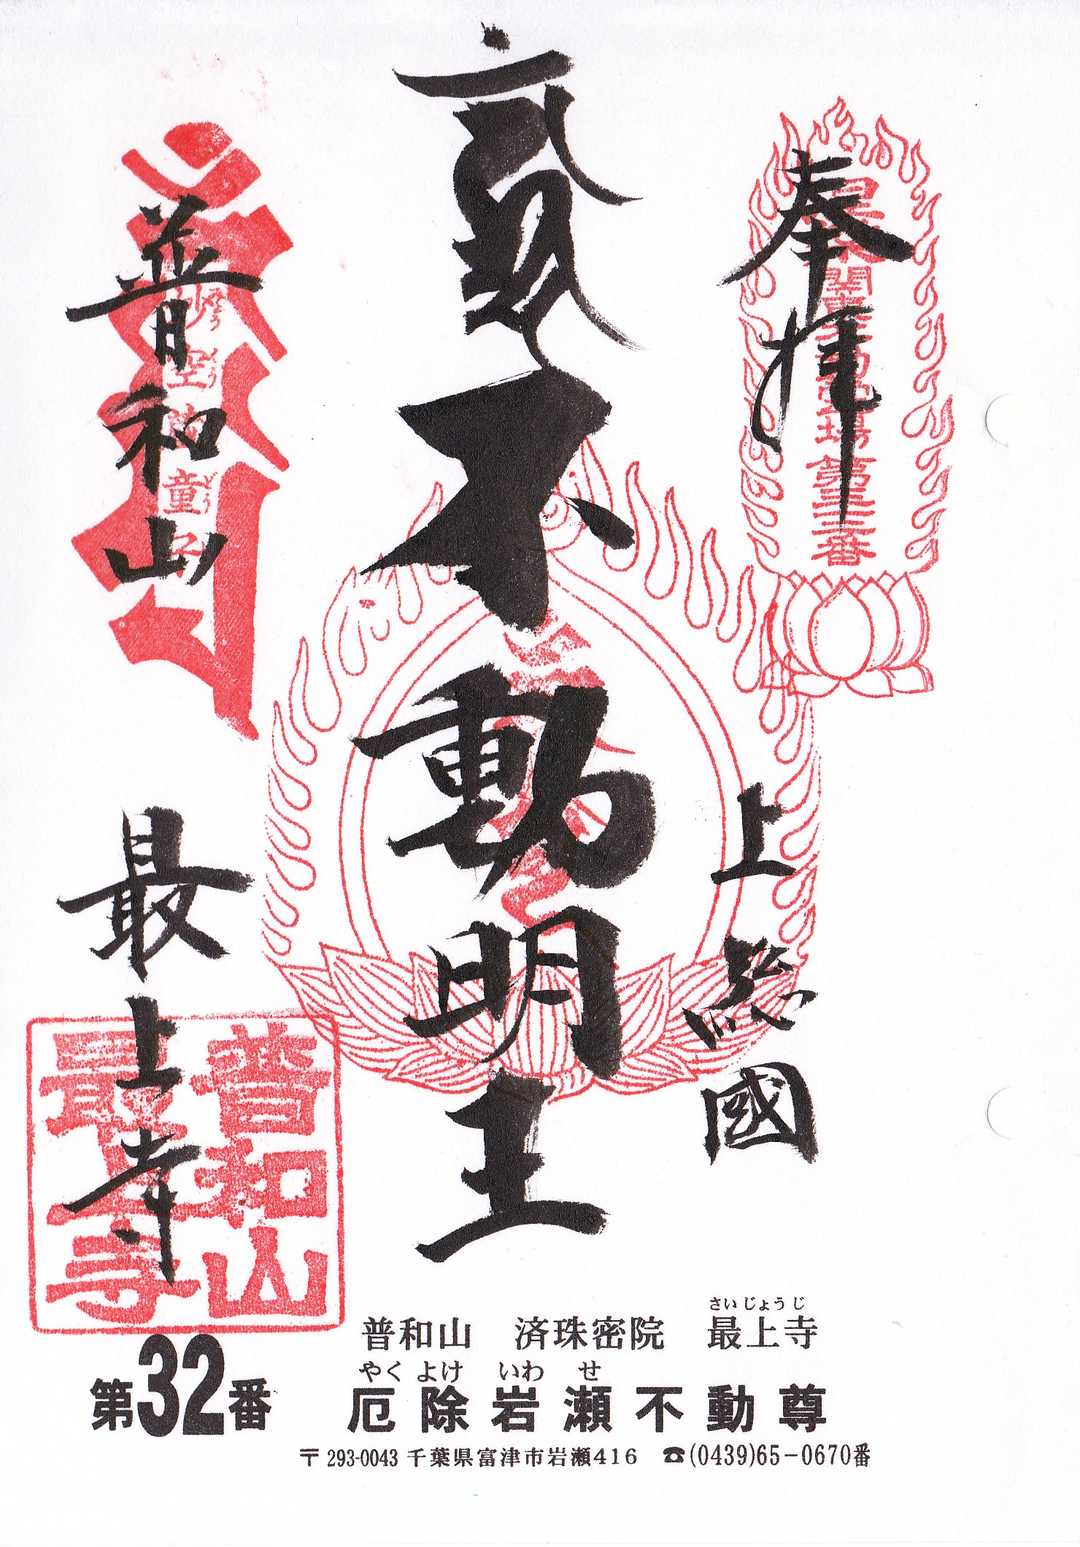 奉拝
第三十二番
上総國
不動明王
普和山
童子
最上寺
普和山
最上寺
普和山 済珠密院 最上寺
さいじょうじ
第32番
やくよけ いわせ
厄除岩瀬不動尊
〒293-0043 千葉県富津市岩瀬416 ☎(0439)65-0670番